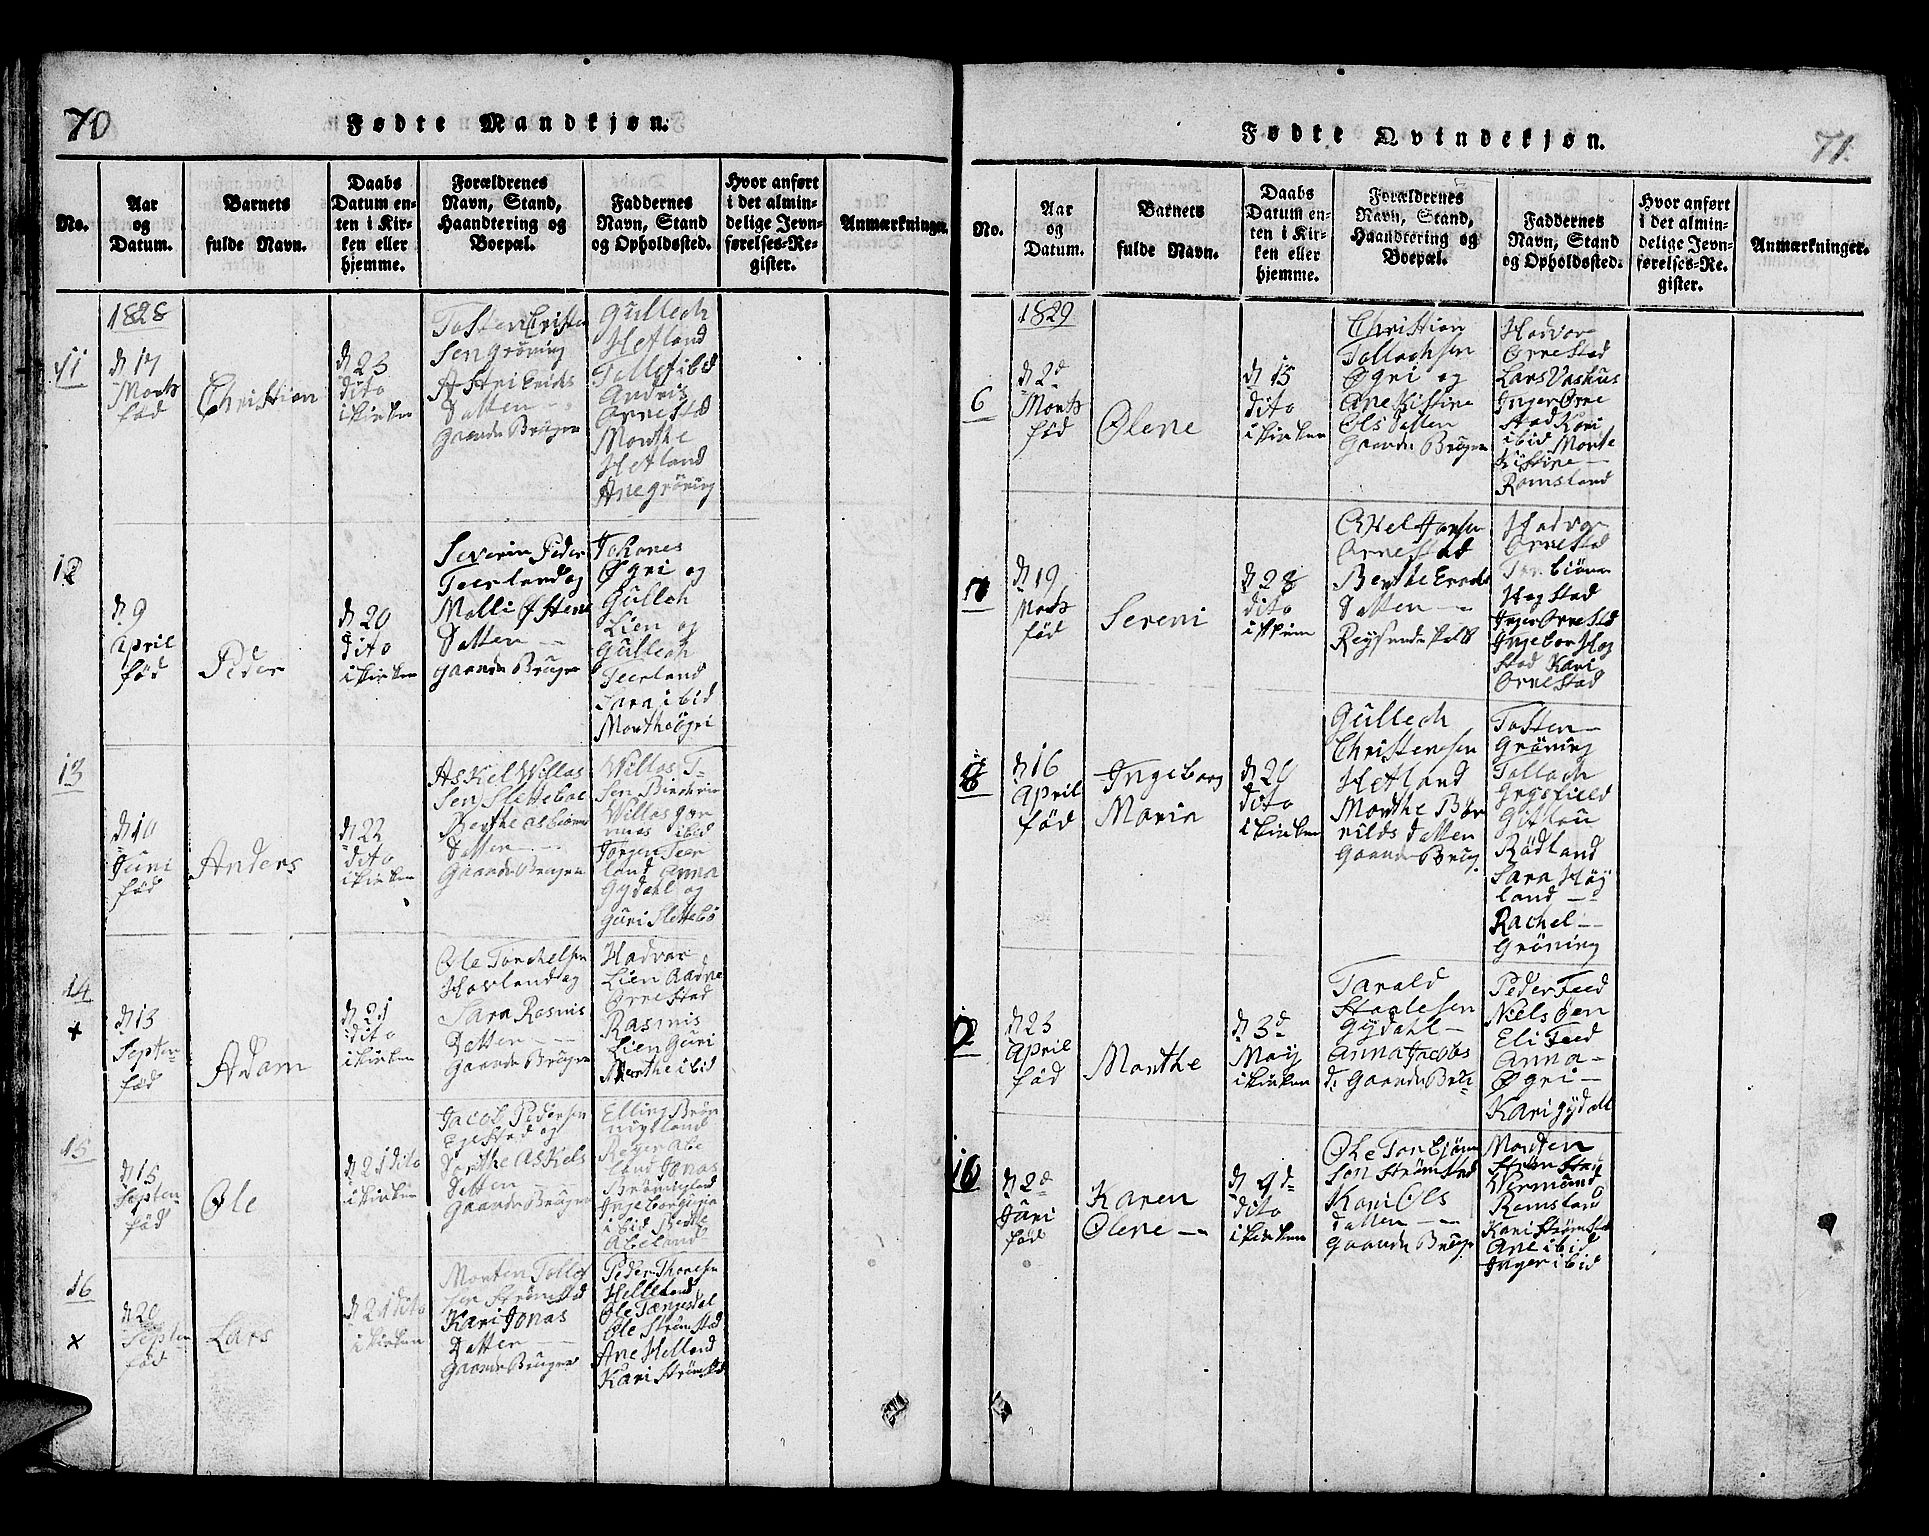 70
Fødte Mandkjøn.
No.
Aar
og
Datum.
Barnets
fulde Navn.
Daabs
Datum en-
ten i Kir-
ken eller
hjemme.
Forældrenes
Navn, Stand,
Haandtering og
Boepæl.
Faddernes
Navn, Stand
og Opholdssted.
Hvor anført
i det almin-
delige Jevn-
førelses-Re-
gister.
Anmærkninger.
11
1828
d 17
Marts
fød
Christian
d 23
dito
i kirken
Tosten Christen
sen Grøning
Astri Erids
Datten
Gaards Bruger
Gullech
Hetland
Tollef ibid
Andris
Ørnestad
Monthe
Hetland
Ane Grøning
12
d 9
April
fød
Peder
d 20
dito
i kirken
Severin Peder
Teerland og
Malli Østens
Datten
gaards Bruger
Johanes
Øgri og
Gullech
Lien og
Gullech
Teerland
Sara ibid
Monthe Øgri
13
d 10
Juni
fød
Anders
d 22
dito
i kirken
Askel Willas
sen Slettebøe
Berthe Asbiørns
Datten
Gaards Bruger
Willas T-
sen
Willas Gør
ibid
Jørgen Teer
land Anna
Gydahl og
Guri Slettebø
14
x
d 13
Septem
fød
Adam
d 21
dito
i kirken
Ole Torchelsen
Hovland og
Sara Rasmis
Datten
Gaards Bruger
Hadvar
Lien Aadne
Ørnestad
Rasmis
Lien Guri
Monthe ibid
15
d 15
Septem
fød
Ole
d 21 dito
i kirken
Jacob Pedersen
Egestad og
Dorthe Askiels
Datten
Gaards Bruger
Elling Brøn
nigsland
Reger Abe
land Jonas
Brønigsland
Ingeborg
ibid Berthe
Abeland
16
x
d 20
Septem
fød
Lars
d 21 dito
i kirken
Monten Tollef
sen Strømstad
Kari Jonas
Datten
Gaards Bruger
Peder Thorsen
Helleland
Ole Tengesdal
Ole Strømstad
Ane Helland
Kari Strømstad
Fødte Qvindekjøn.
71.
No.
Aar
og
Datum.
Barnets
fulde Navn.
Daabs
Datum en-
ten i Kir-
ken eller
hjemme.
Forældrenes
Navn, Stand,
Haandtering og
Boepæl.
Faddernes
Navn, Stand
og Opholdssted.
Hvor anført
i det almin-
delige Jevn-
førelses-Re-
gister.
Anmærkninger.
6
1829
d 2d
Marts
fød
Ølene
d 15
dito
i kirken
Christian
Tollachsen
Øgri og
Ane Kistine
Ols Datten
Gaards Bruger
Hadvor
Ørnestad
Lars Vashus
Inger Ørne
stad Kari
ibid Monte
Kistine
Romsland
7
d 19
Marts
fød
Sereni
d 28
dito
i kirken
Axel Jansen
Ørnestad
Berthe Erads
Datten
Reysende Folk
Hadvor
Ørnestad
Torbiøn
Hogstad
Inger Ørnestad
Ingebor Hog
stad Kari
Ørnestad
8
d 16
April
fød
Ingeborg
Maria
d 20
dito
i kirken
Gullech
Christensen
Hetland
Monthe Bør
rilds datten
Gaards Brug.
Tosten
Grøning
Tollach
Gittau
Rødland
Sara Høy
land
Rachel
Grøning
9
d 23
April
fød
Monthe
d 3d
May
i kirken
Tarald
Staalesen
Gydahl
Anna Jacobs
d: Gaards Bru:
Peder Feed
Niels Øen
Eli Feed
Anna
Øgri
Kari Gydall
10
d 2d
Juni
fød
Karen
Olene
d 9d
dito
i kirken
Ole Torbjørn
sen Strømstad
Kari Ols
datten
Gaards Bruge
Monten
Strømstad
Vermund
Romsland
Kari Strømstad
Ane ibid
Inger ibid